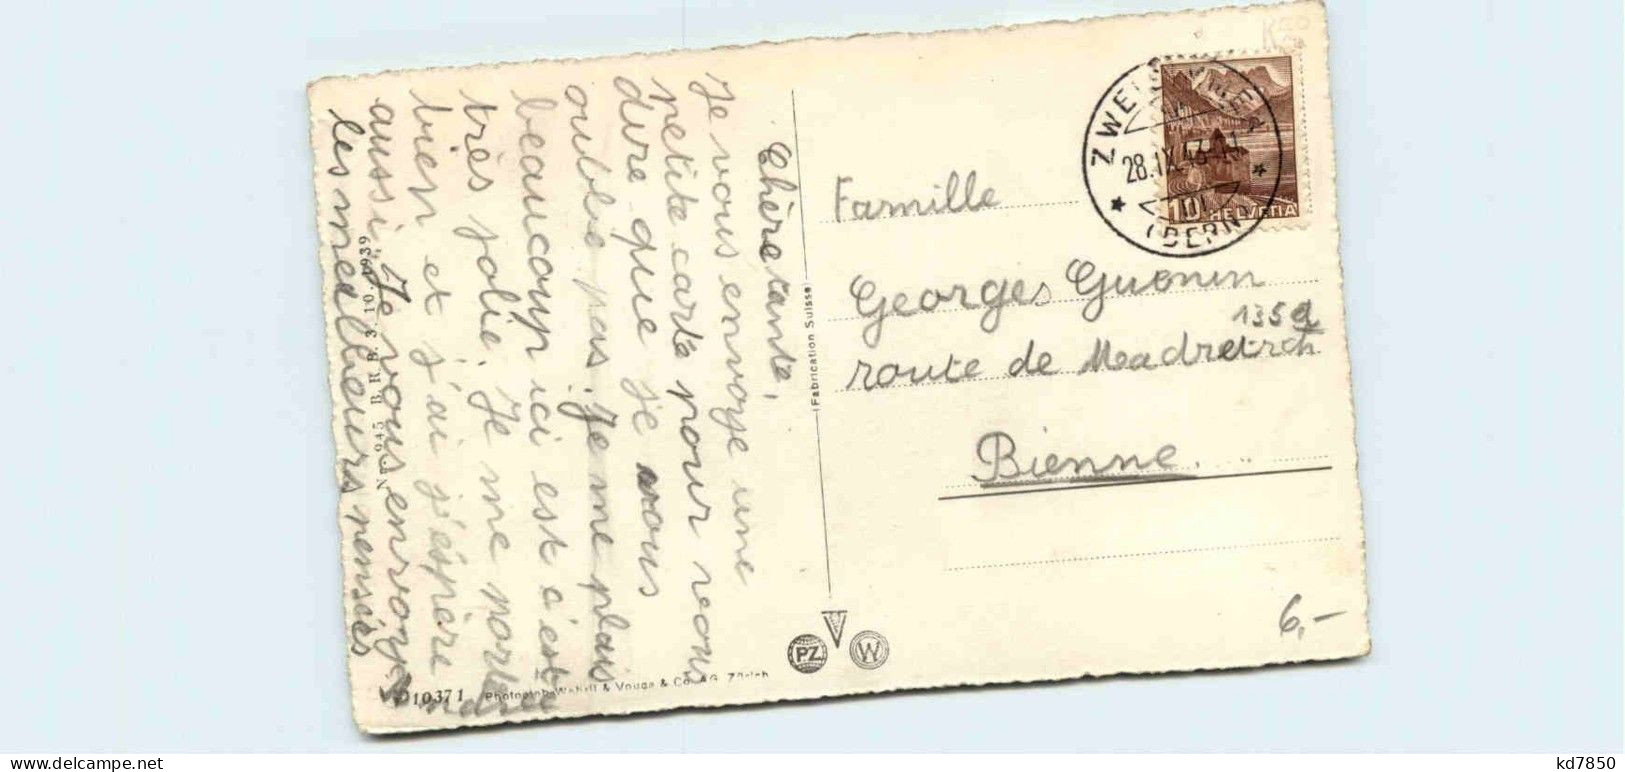 Chère tante,
Je vous envoye une
petite carte pour vous
dire que je vous
oublie pas. Je me plais
beaucoup ici est c'est
très jolie. Je me porte
bien et j'ai j'espère
aussi. Je vous envoye
les meilleurs pensées
Andrée
Nº 945 B.R.B. 3.10.1939
10371 Photograph Wehrli & Vouga & Co. AG. Zürich
(Fabrication Suisse)
PZ
W
ZWEISIMMEN
28.IX.43
(BERN)
10 HELVETIA
Famille
Georges Guenin
135a
route de Madretsch
Bienne.
6,-
kd7850